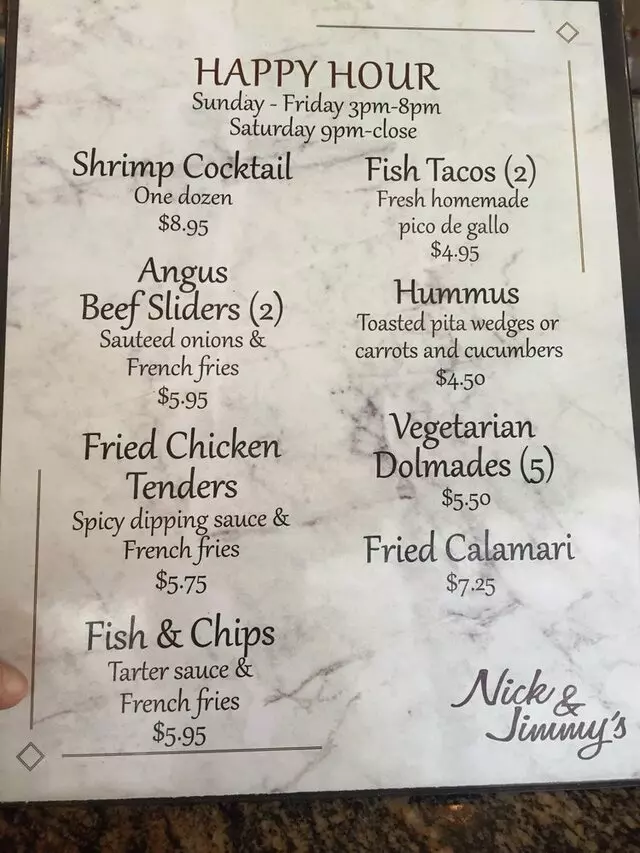 HAPPY HOUR
Sunday - Friday 3pm-8pm
Saturday 9pm-close
Shrimp Cocktail
One dozen
$8.95
Angus
Beef Sliders (2)
Sauteed onions &
French fries
$5.95
Fried Chicken
Tenders
Spicy dipping sauce &
French fries
$5.75
Fish & Chips
Tarter sauce &
French fries
$5.95
Fish Tacos (2)
Fresh homemade
pico de gallo
$4.95
Hummus
Toasted pita wedges or
carrots and cucumbers
$4.50
Vegetarian
Dolmades (5)
$5.50
Fried Calamari
$7.25
Nick &
Jimmy's